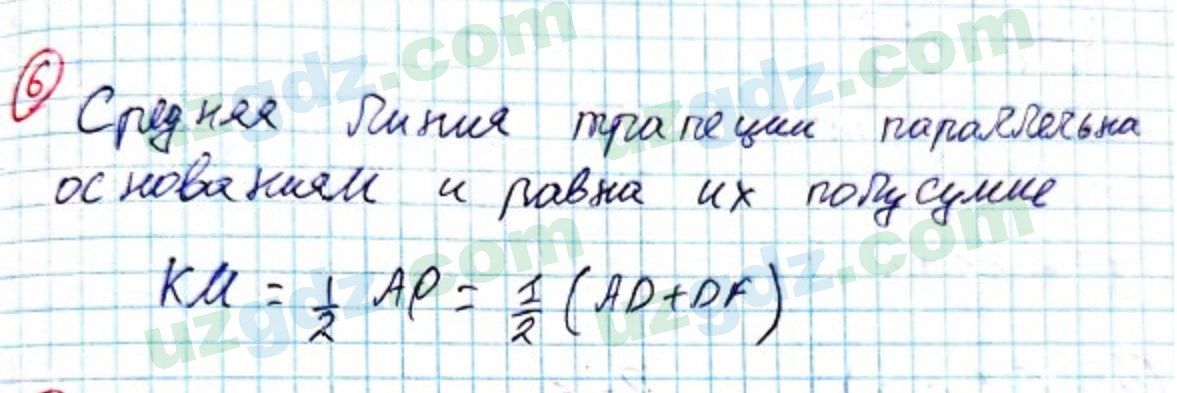 6
Средняя линия трапеции параллельна
основаниям и равна их полусумме
KM = 1/2 AP = 1/2 (AD+DF)
uzgdz.com uzgdz.com
uzgdz.com uzgdz.com